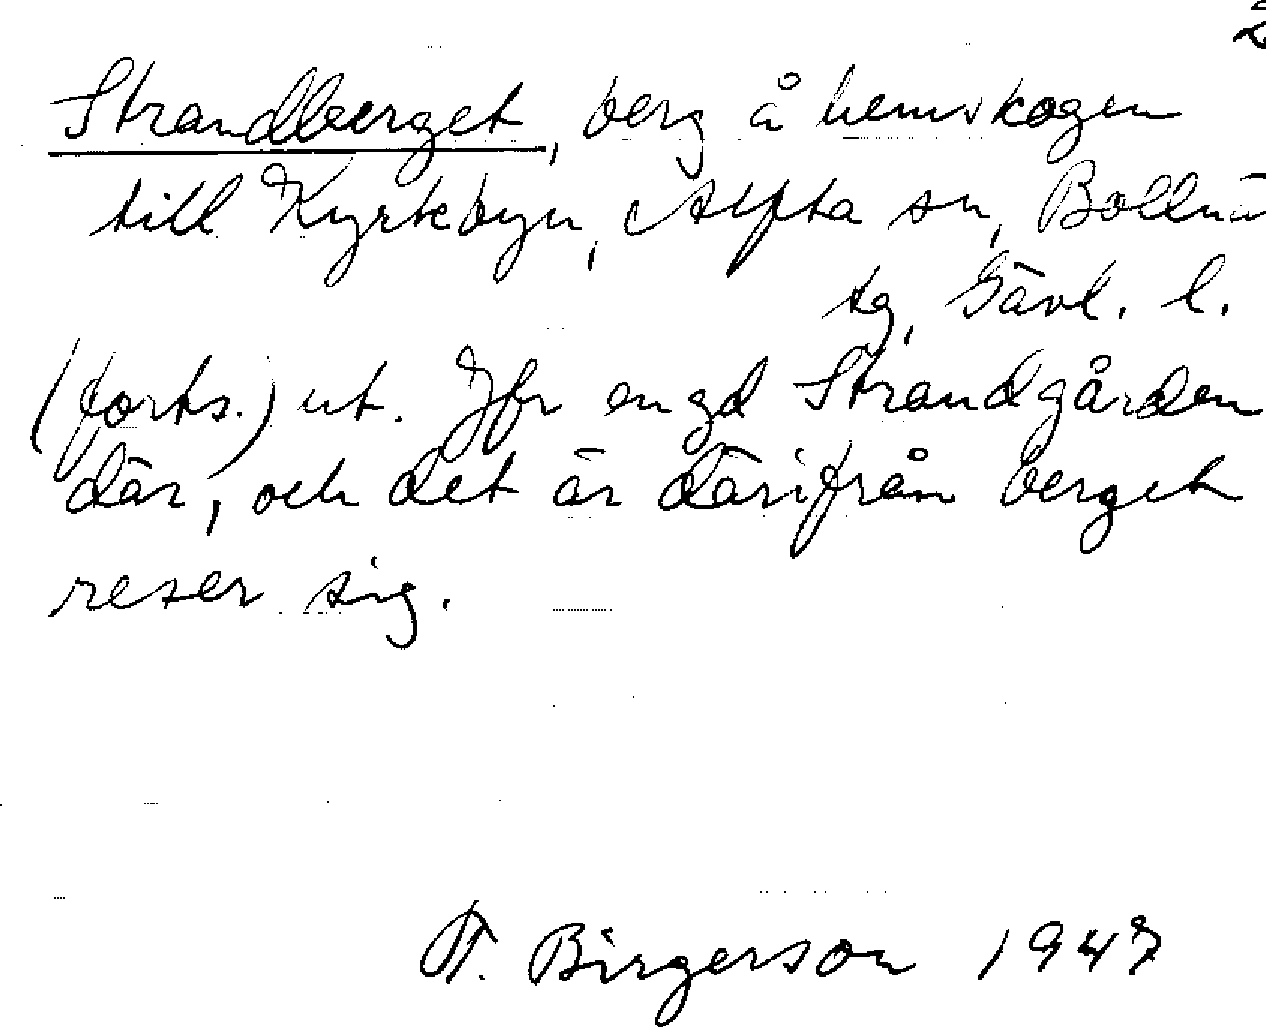 2
Strandberget, berg å hemskogen
till Kyrkbyn, Alfta sn, Bollnä
tg, Gävl. l.
(forts.) ut. Jfr en gd Strandgården
där, och det är därifrån berget
reser sig.
Birgerson 1947